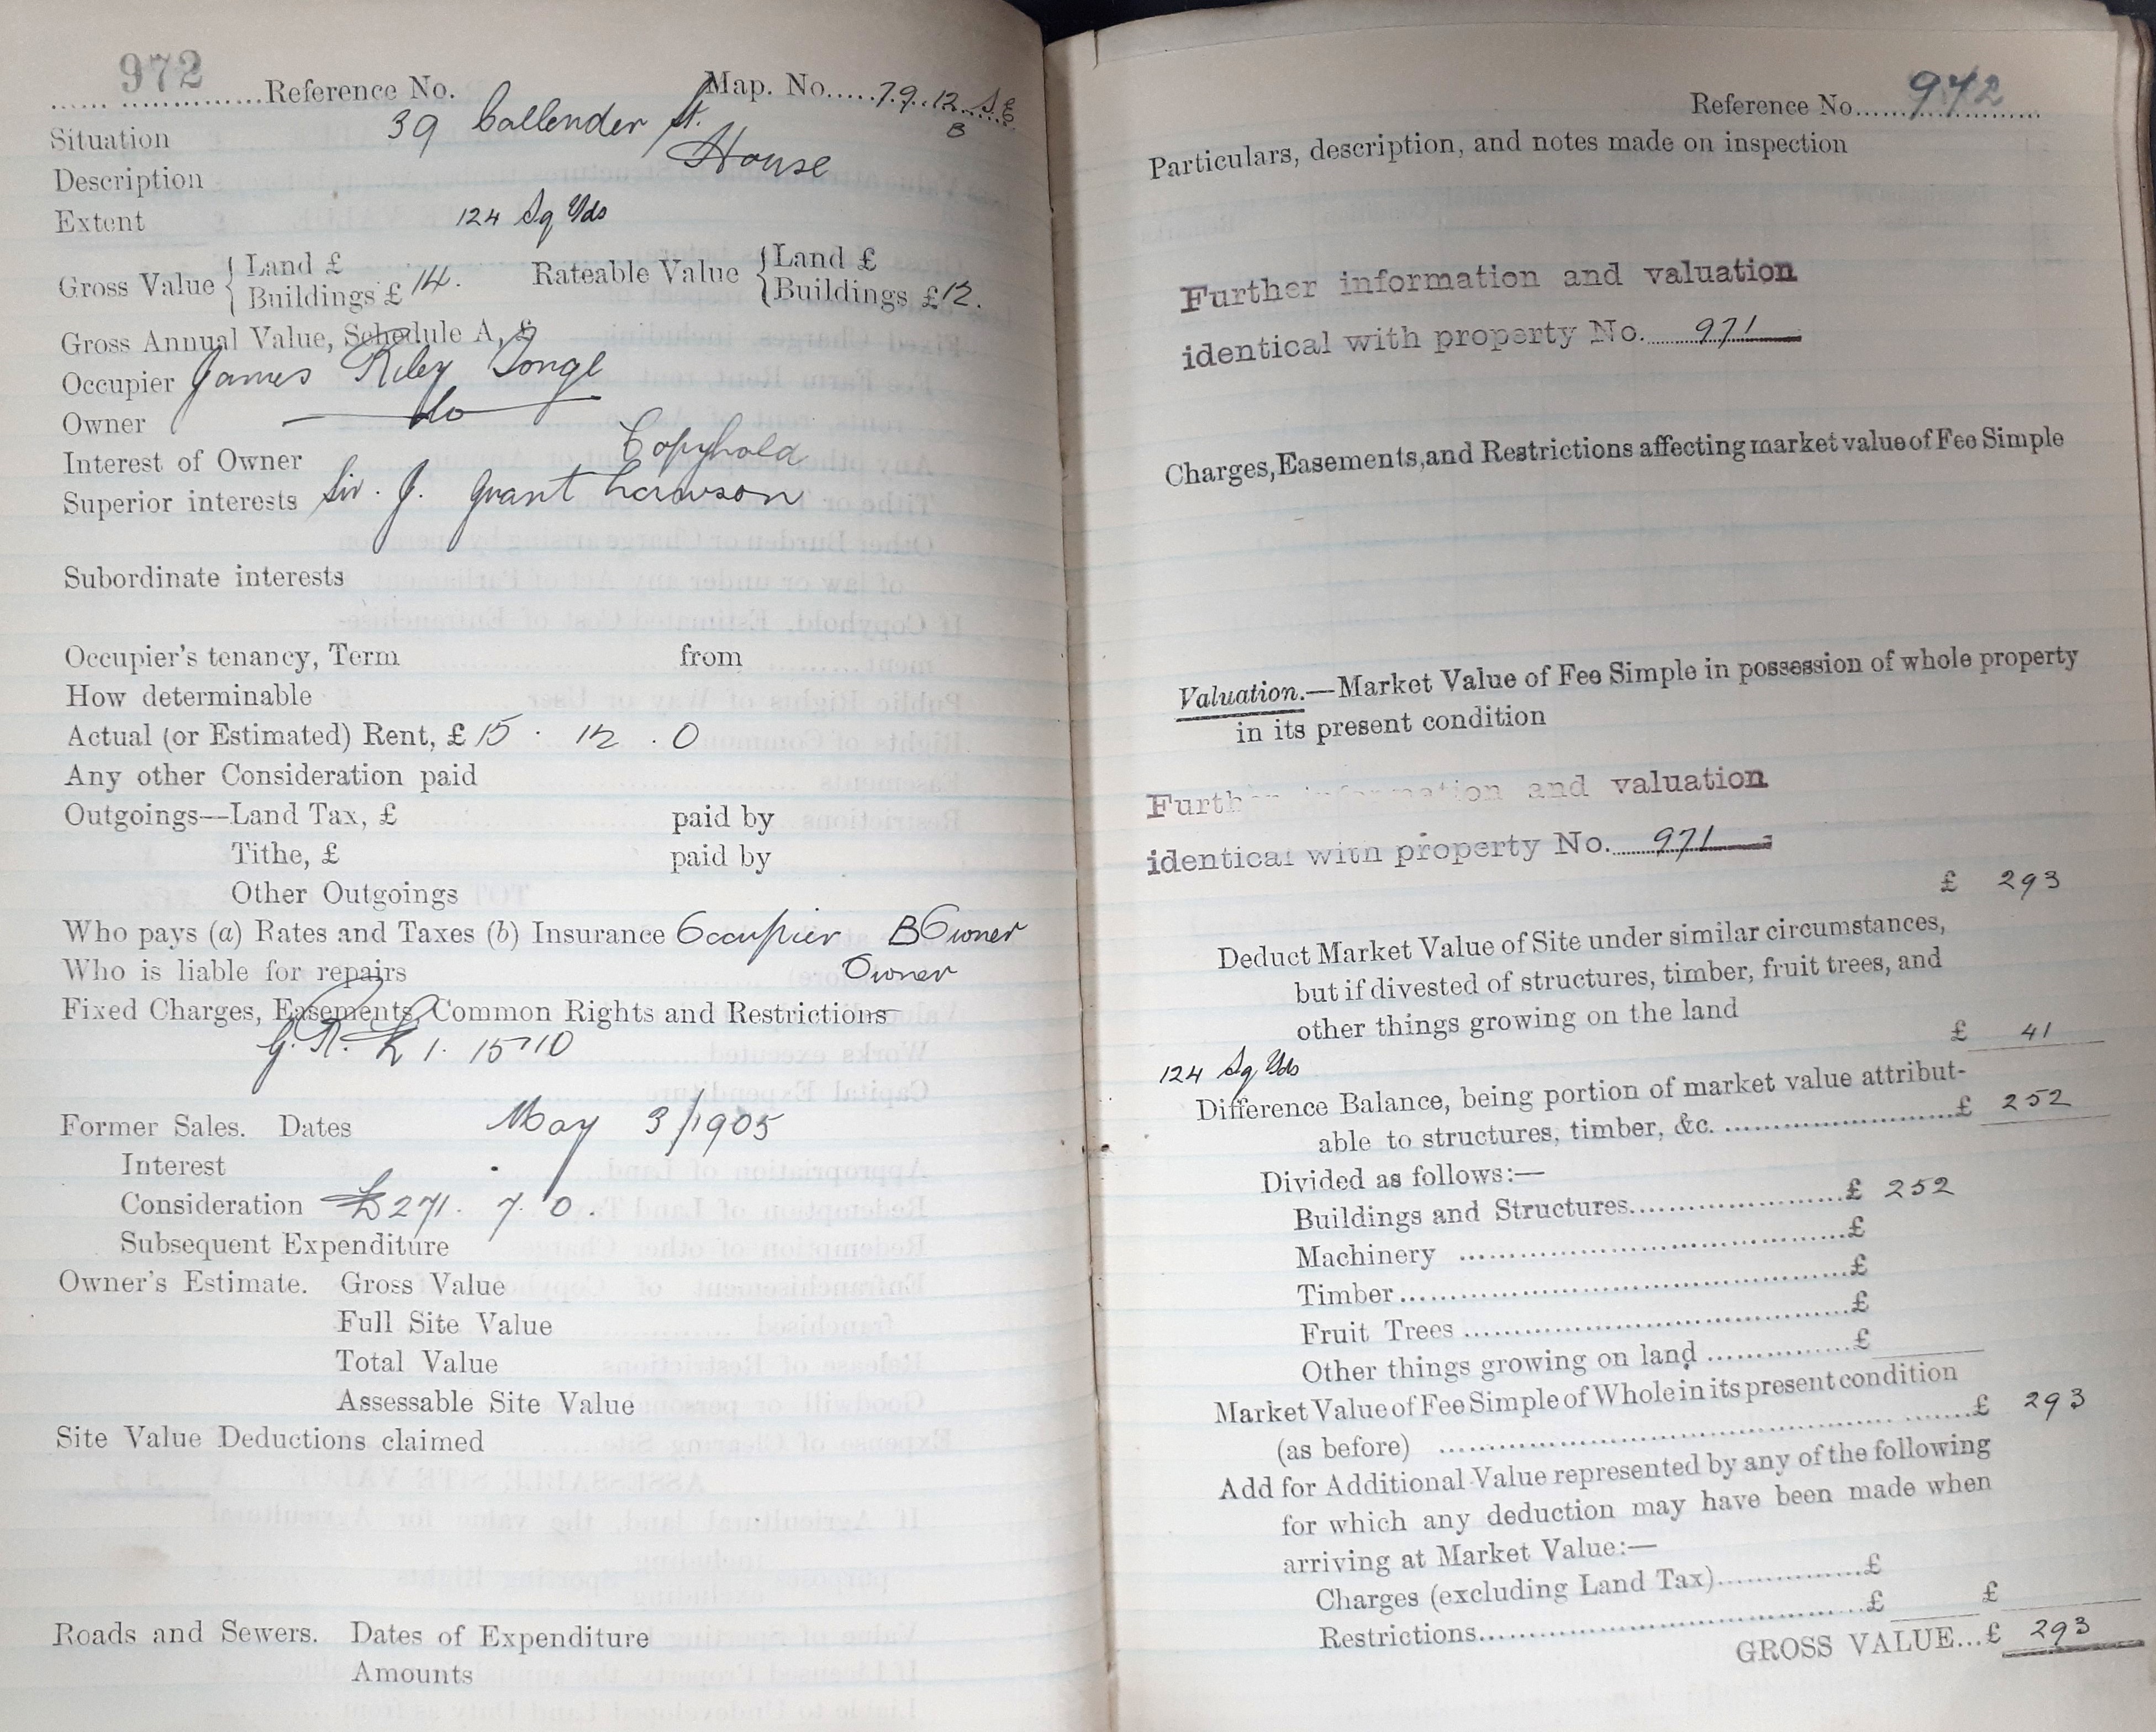 972 Reference No. Map. No. 79.12 S E
B
Situation 39 Callender St.
Description House
Extent 124 Sq Yds
Gross Value { Land £ Rateable Value { Land £
Buildings £ 14. Buildings £12.
Gross Annual Value, Schedule A, £
Occupier James Riley Tonge
Owner do
Interest of Owner Copyhold
Superior interests Sir. J. Grant Lawson
Subordinate interests
Occupier's tenancy, Term from
How determinable
Actual (or Estimated) Rent, £ 15 . 12 . 0
Any other Consideration paid
Outgoings—Land Tax, £ paid by
Tithe, £ paid by
Other Outgoings
Who pays (a) Rates and Taxes (b) Insurance Occupier B Owner
Who is liable for repairs Owner
Fixed Charges, Easements, Common Rights and Restrictions
G.R. £1. 15 10
Former Sales. Dates May 3/1905
Interest
Consideration £271. 7. 0.
Subsequent Expenditure
Owner's Estimate. Gross Value
Full Site Value
Total Value
Assessable Site Value
Site Value Deductions claimed
Roads and Sewers. Dates of Expenditure
Amounts
Reference No. 972
Particulars, description, and notes made on inspection
Further information and valuation
identical with property No. 971
Charges, Easements, and Restrictions affecting market value of Fee Simple
Valuation.—Market Value of Fee Simple in possession of whole property
in its present condition
Further information and valuation
identical with property No. 971
£ 293
Deduct Market Value of Site under similar circumstances,
but if divested of structures, timber, fruit trees, and
other things growing on the land
£ 41
124 Sq Yds
Difference Balance, being portion of market value attribut-
able to structures, timber, &c. £ 252
Divided as follows:—
Buildings and Structures £ 252
Machinery £
Timber £
Fruit Trees £
Other things growing on land £
Market Value of Fee Simple of Whole in its present condition
(as before) £ 293
Add for Additional Value represented by any of the following
for which any deduction may have been made when
arriving at Market Value:—
Charges (excluding Land Tax) £
Restrictions £ £
GROSS VALUE...£ 293